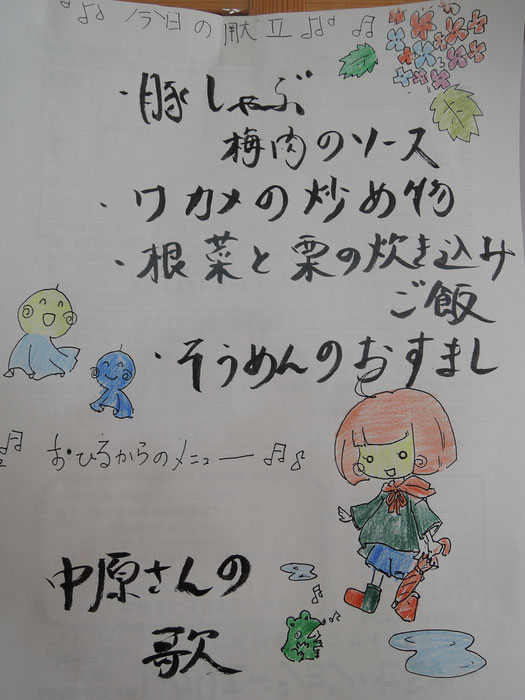 ♪♫ 今日の献立 ♫♪ ♫
・豚しゃぶ
梅肉のソース
・ワカメの炒め物
・根菜と栗の炊き込み
ご飯
・そうめんのおすまし
♫ おひるからのメニュー ♫♪
中原さんの
歌